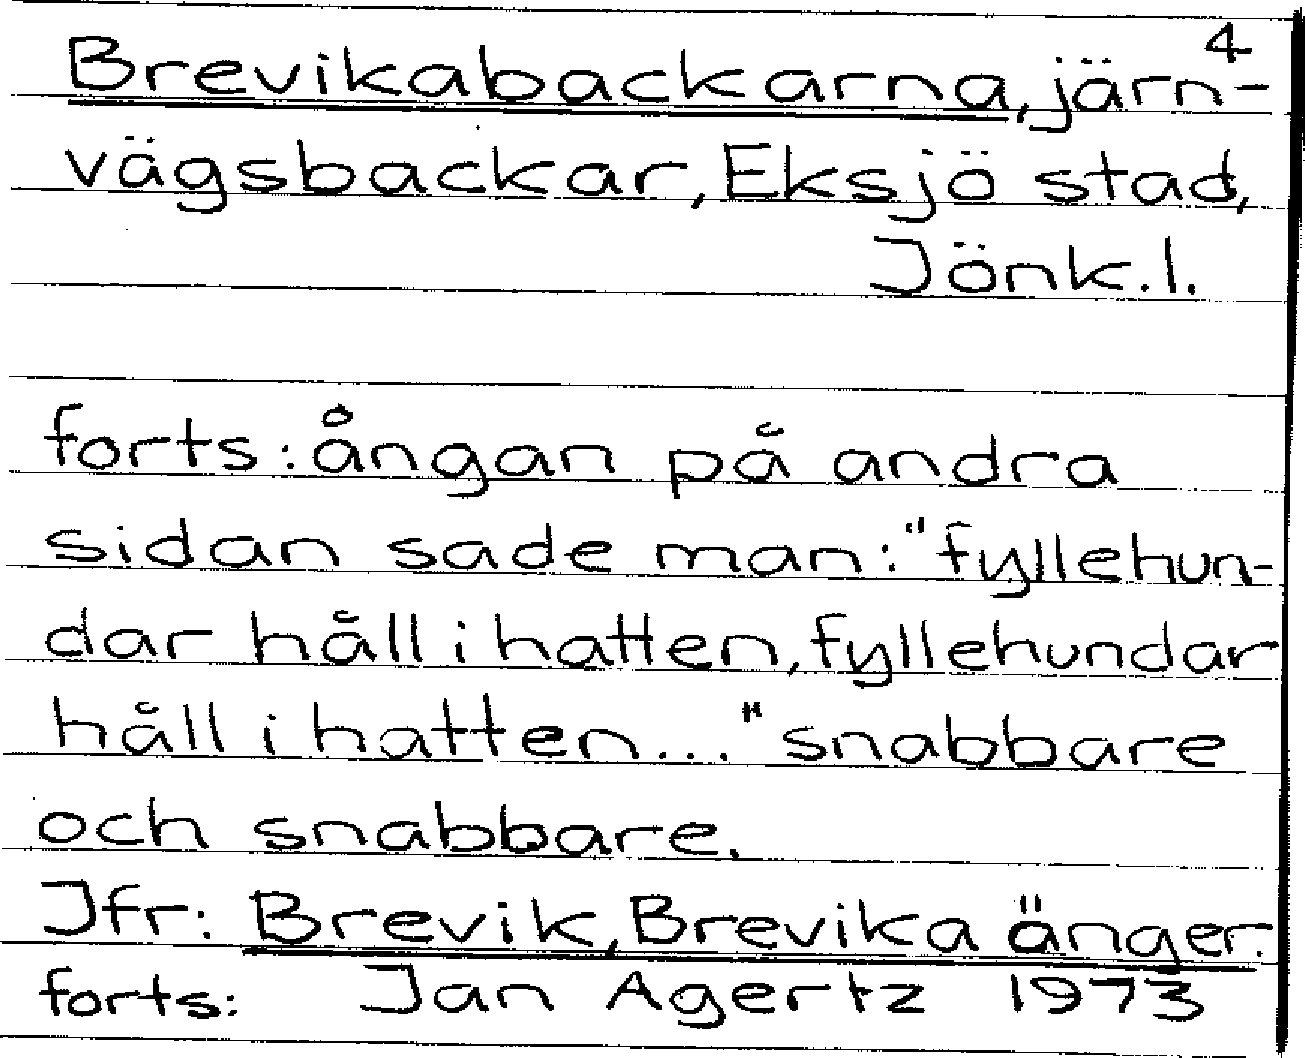 4
Brevikabackarna, järn-
vägsbackar, Eksjö stad,
Jönk.l.
forts: ångan på andra
sidan sade man: "fyllehun-
dar håll i hatten, fyllehundar
håll i hatten...." snabbare
och snabbare.
Jfr: Brevik, Brevika änger.
forts: Jan Agertz 1973